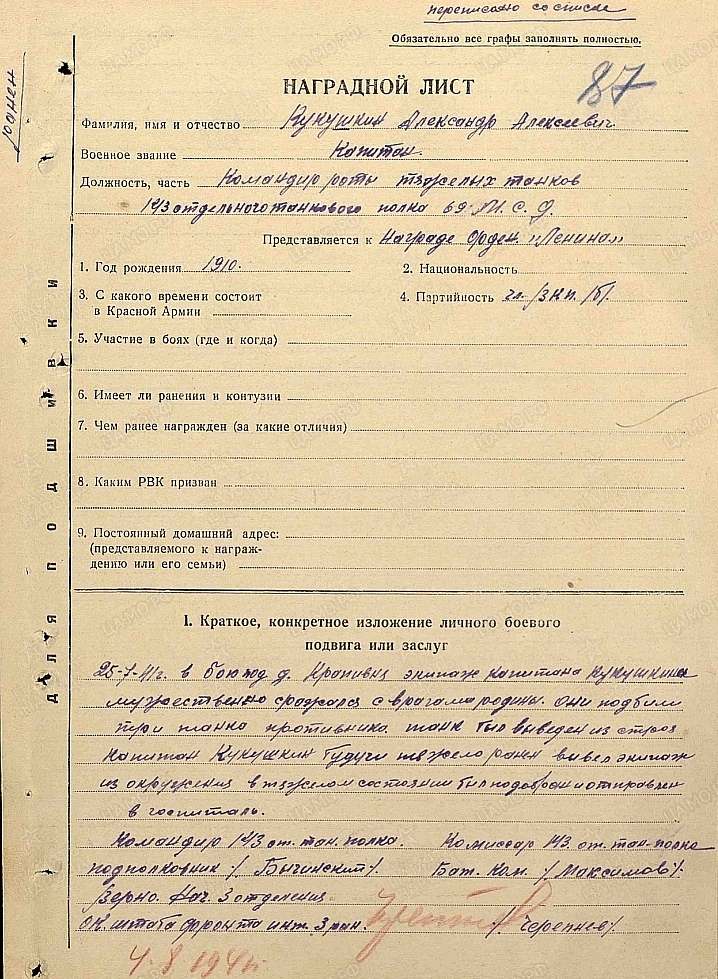 переписано со списка
Обязательно все графы заполнять полностью.
ранен
87
НАГРАДНОЙ ЛИСТ
Фамилия, имя и отчество Кукушкин Александр Алексеевич.
Военное звание Капитан.
Должность, часть Командир роты тяжелых танков
143 отдельного танкового полка 69 М.С.Д.
Представляется к Награде Орден „Ленина"
1. Год рождения 1910.
2. Национальность
3. С какого времени состоит
в Красной Армии
4. Партийность чл. /ВКП. /б/.
5. Участие в боях (где и когда)
6. Имеет ли ранения и контузии
7. Чем ранее награжден (за какие отличия)
8. Каким РВК призван
9. Постоянный домашний адрес:
(представляемого к награж-
дению или его семьи)
ДЛЯ ПОДШИВКИ
I. Краткое, конкретное изложение личного боевого
подвига или заслуг
25-7-41г. в бою под д. Крапивня экипаж капитана Кукушкина
мужественно сражался с врагами родины. Они подбили
три танка противника. танк был выведен из строя
Капитан Кукушкин будучи тяжело ранен вывел экипаж
из окружения в тяжелом состоянии был подобран и отправлен
в госпиталь.
Командир 143 от. тан. полка. Комиссар 143. от. тан-полка
подполковник /Бычинский/. Бат. Ком. /Максимов/.
Верно. Нач. 3 отделения
Ок. штаба фронта инт. 3 ран. /Черепнев/.
4.8.1941г.